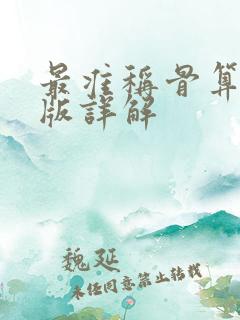 最准稱骨算
版詳解
魏延
未经同意禁止转载